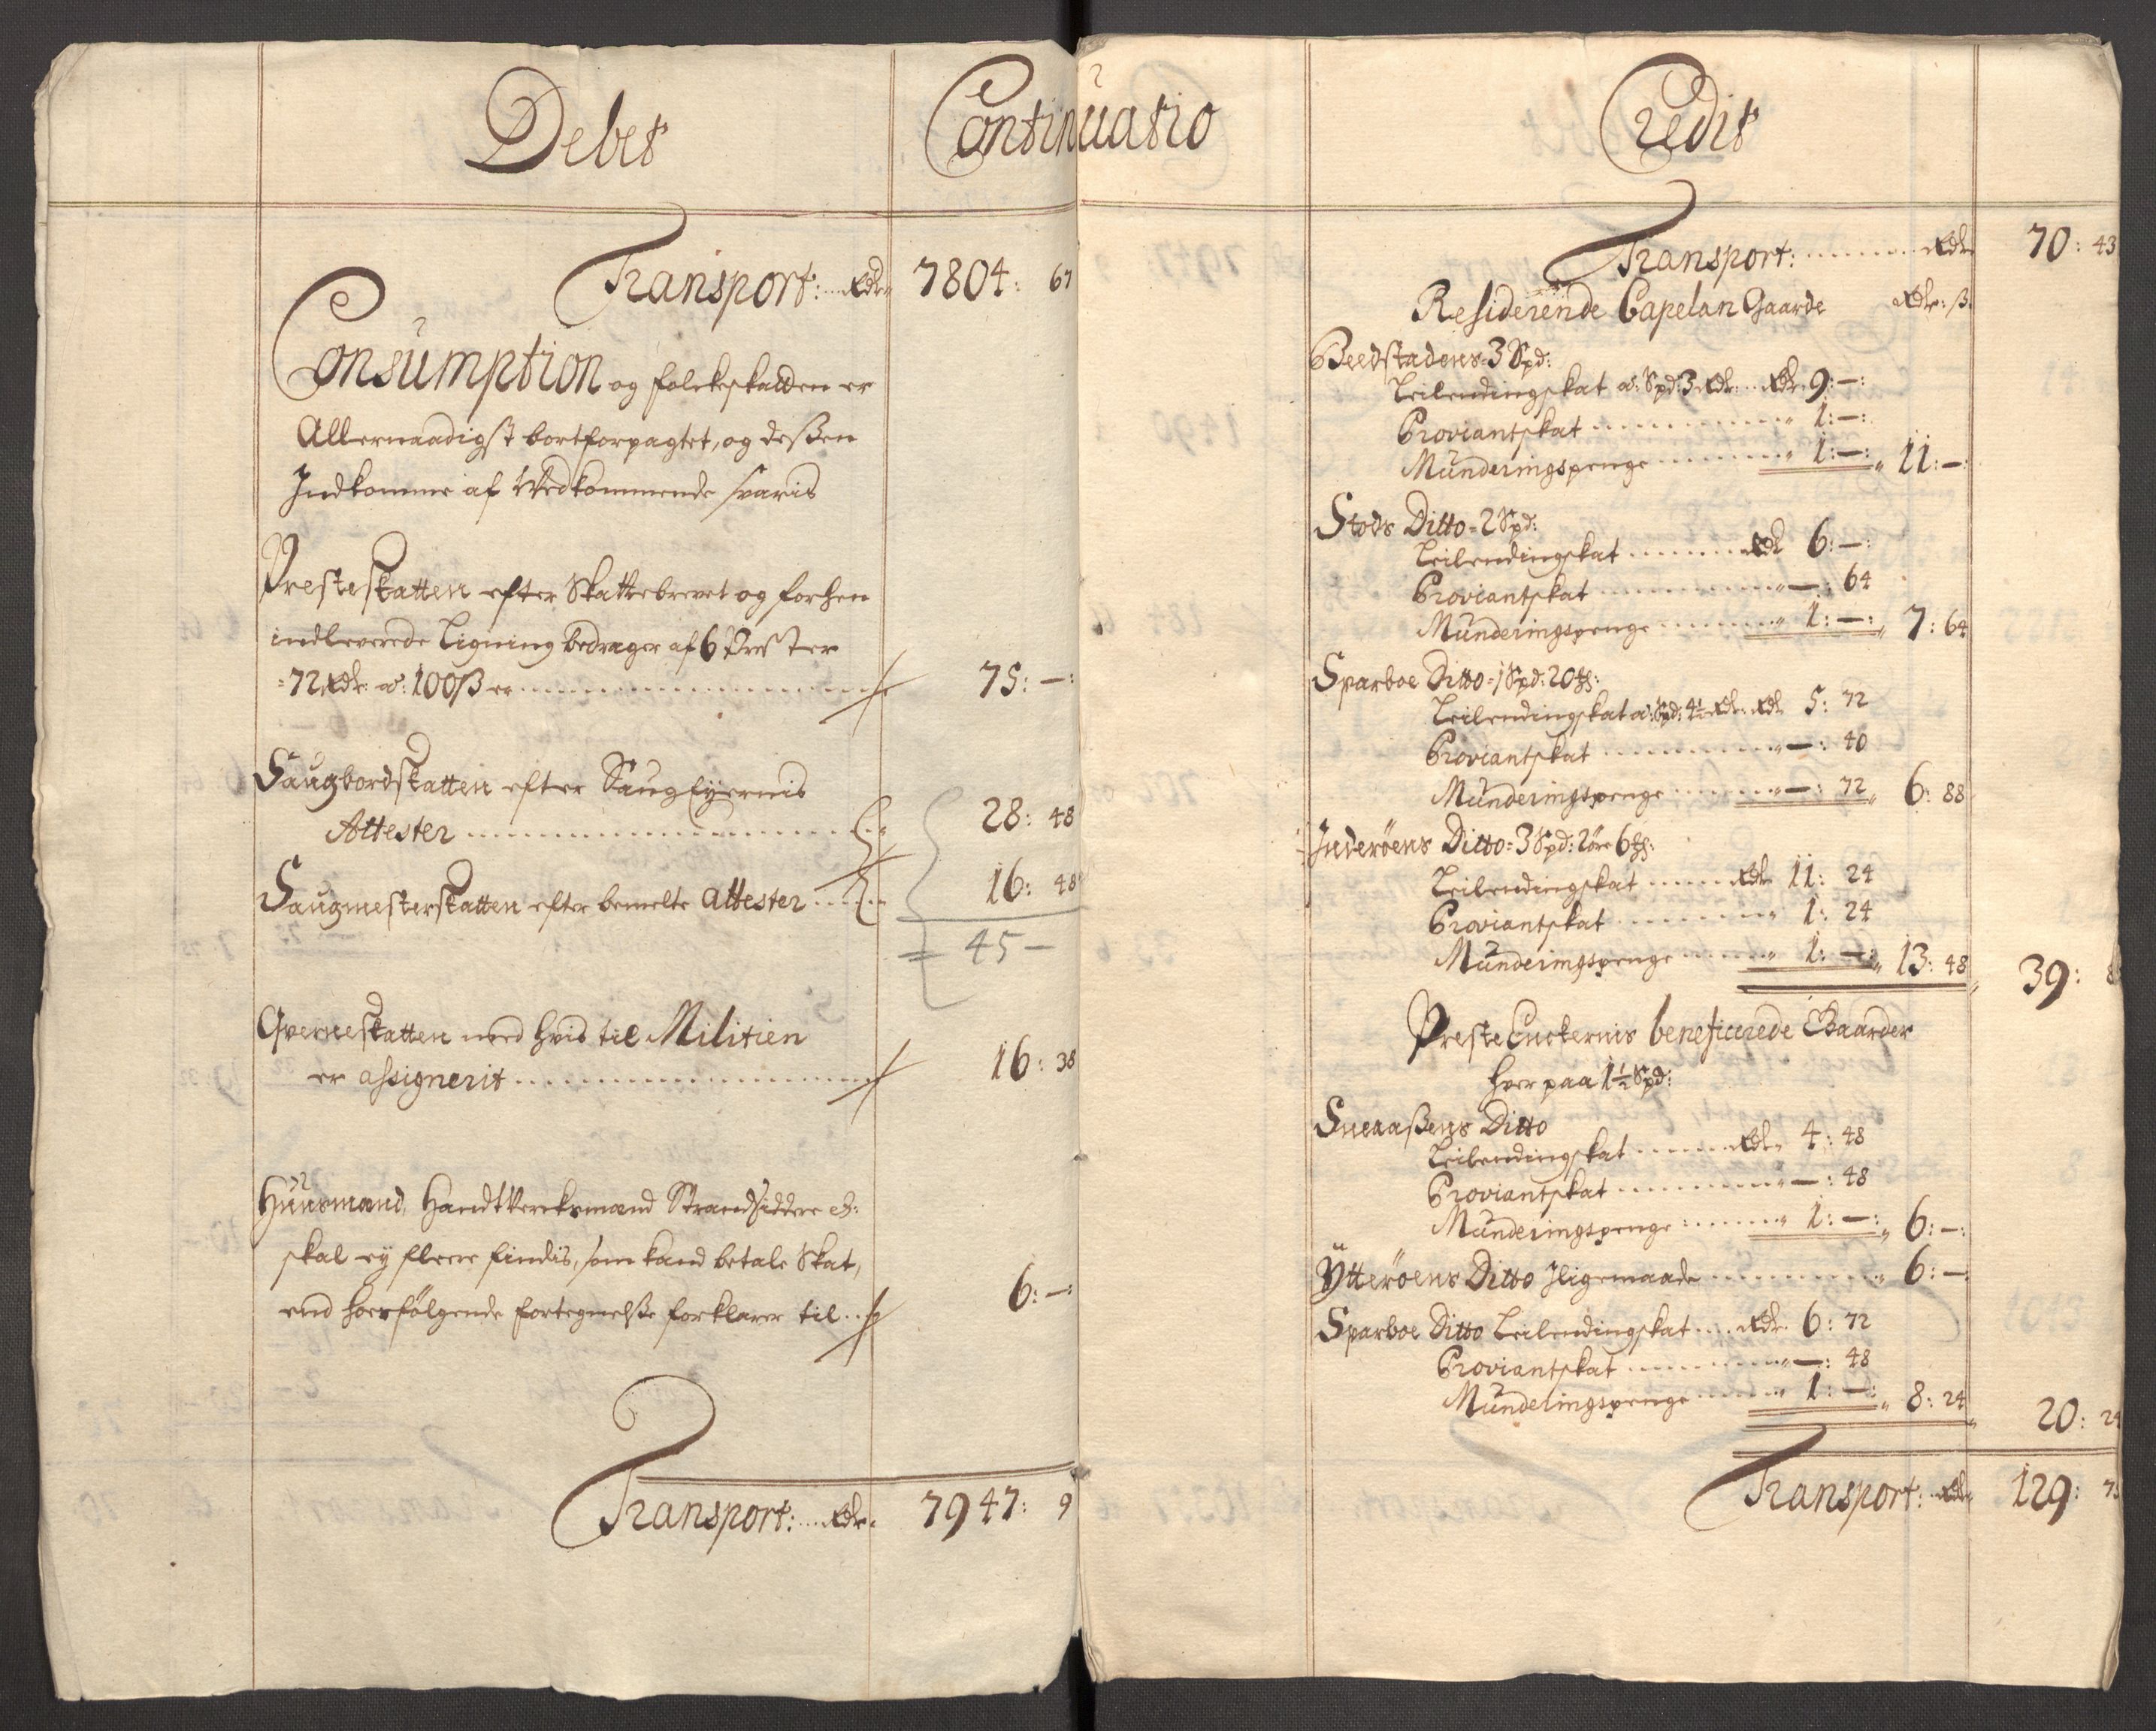 Debet
Continuatio
Transport: Rdr. 7804: 67
Consumption og folckeskatten er
Allernaadigst bortforpagtet, og dessen
Indkomme af Vedkommende svaris
Presteskatten efter Skattebrevet og forhen
indleverede Ligning bedrager af 6 Prester
=72 Rdr. a: 100 ß er 75: —:
Saugbordskatten efter Saug Eyernis
Attester 28: 48
Saugmesterskatten efter bemelte Attester 16: 48
= 45 —
Qverneskatten med hvis til Militien
er assignerit 16: 38
Huusmænd, Handtverksmænd Strandsiddere etc:
skal ey fleere findis, som kand betale Skat,
end hosfølgende fortegnelsse forklarer til 6: —:
Transport: Rdr. 7947: 9
Credit
Transport: Rdr. 70: 43
Residerende Capelan Gaarde Rdr: ß:
Beedstadens=3 Spd:
Leilendingskat a: Spd: 3 Rdr: Rdr: 9: —:
Proviantskat 1: —:
Munderingspenge 1: —: 11: —:
Stods Ditto=2 Spd:
Leilendingskat Rdr 6: —:
Proviantskat —: 64
Munderingspenge 1: —: 7: 64
Sparboe Ditto=1 Spd: 20 ℔:
Leilendingskat a: Spd: 4½ Rdr: Rdr 5: 72
Proviantskat —: 40
Munderingspenge —: 72 6: 88
Inderöens Ditto=3 Spd: 2 öre 6 ℔:
Leilendingskat Rdr 11: 24
Proviantskat 1: 24
Munderingspenge 1: —: 13: 48 39: 8
Preste Enckernis beneficerede Gaarder
hver paa 1½ Spd:
Sneaassens Ditto
Leilendingskat Rdr 4: 48
Proviantskat —: 48
Munderingspenge 1: —: 6: —:
Ytteröens Ditto Iligemaade 6: —:
Sparboe Ditto Leilendingskat Rdr. 6: 72
Proviantskat —: 48
Munderingspenge 1: —: 8: 24 20: 24
Transport: Rdr. 129: 7